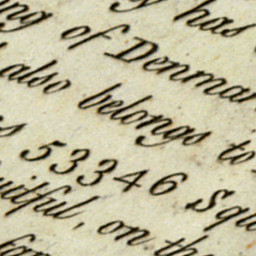 has
of Denmar
also belongs to
53346 Squ
uitful, on th